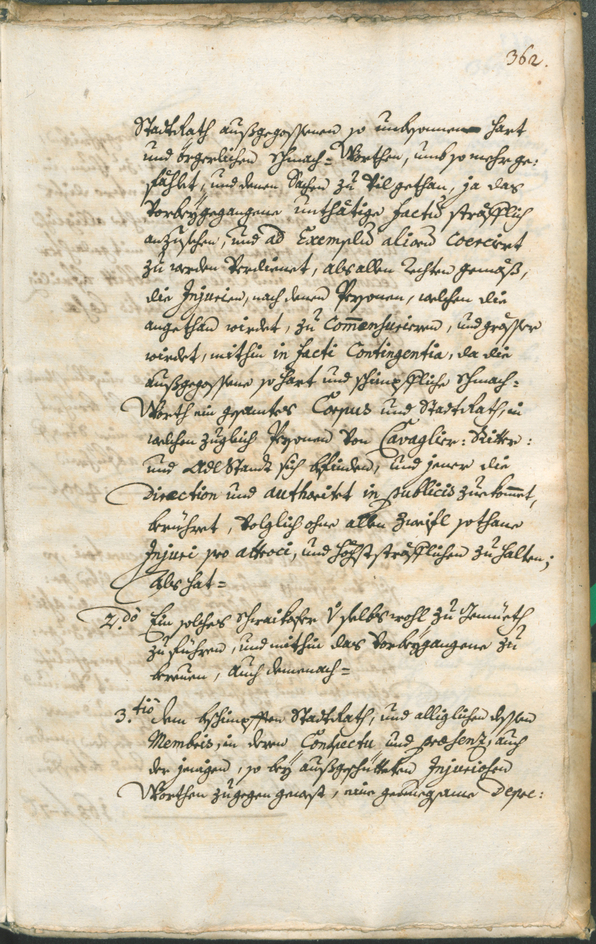 362.
StadtRath außgegossenen so unbesonnen hart
und örgerlichen Schmach= Worthen, umb so mehr ge:
fählet, und denen Sachen zu vil gethan, ja das
Vorbeygegangene unthätige factum sträfflich
anzusehen, und ad Exemplum aliorum Coercirt
zu werden verdienet, als allen Rechten gemäß,
die Injurien, nach denen Persohnen, welchen die
angethan wirdet, zu Commensurieren, und grösser
wirdet, mithin in facti Contingentia, da die
außgegossene so hart und schimpfliche Schmach=
Worth ein gesamtes Corpus und StadtRath, in
welchen zuglich Persohnen von Cavaglier: Ritter:
und Adl Standt sich befinden, und jener die
Direction und authoritet in publicis zuekomet,
berühret, volglich ohne allen Zweifl sothane
Injuri pro atroci, und höchststräfflichen zu halten;
Als hat=
2.do Ein solches Schraikofer Vselbs wohl zu Gemüeth
zu führen, und mithin das Vorbeygangene zu
bereuen, Auch demenach=
3.tio dem beschimpften StadtRath, und alliglichen dessen
Membris, in deren Conspectu und præsenz, auch
der jenigen, so bey außgeschütteten Injuriosen
Worthen zugegen gewest, eine genuegsame Depre: